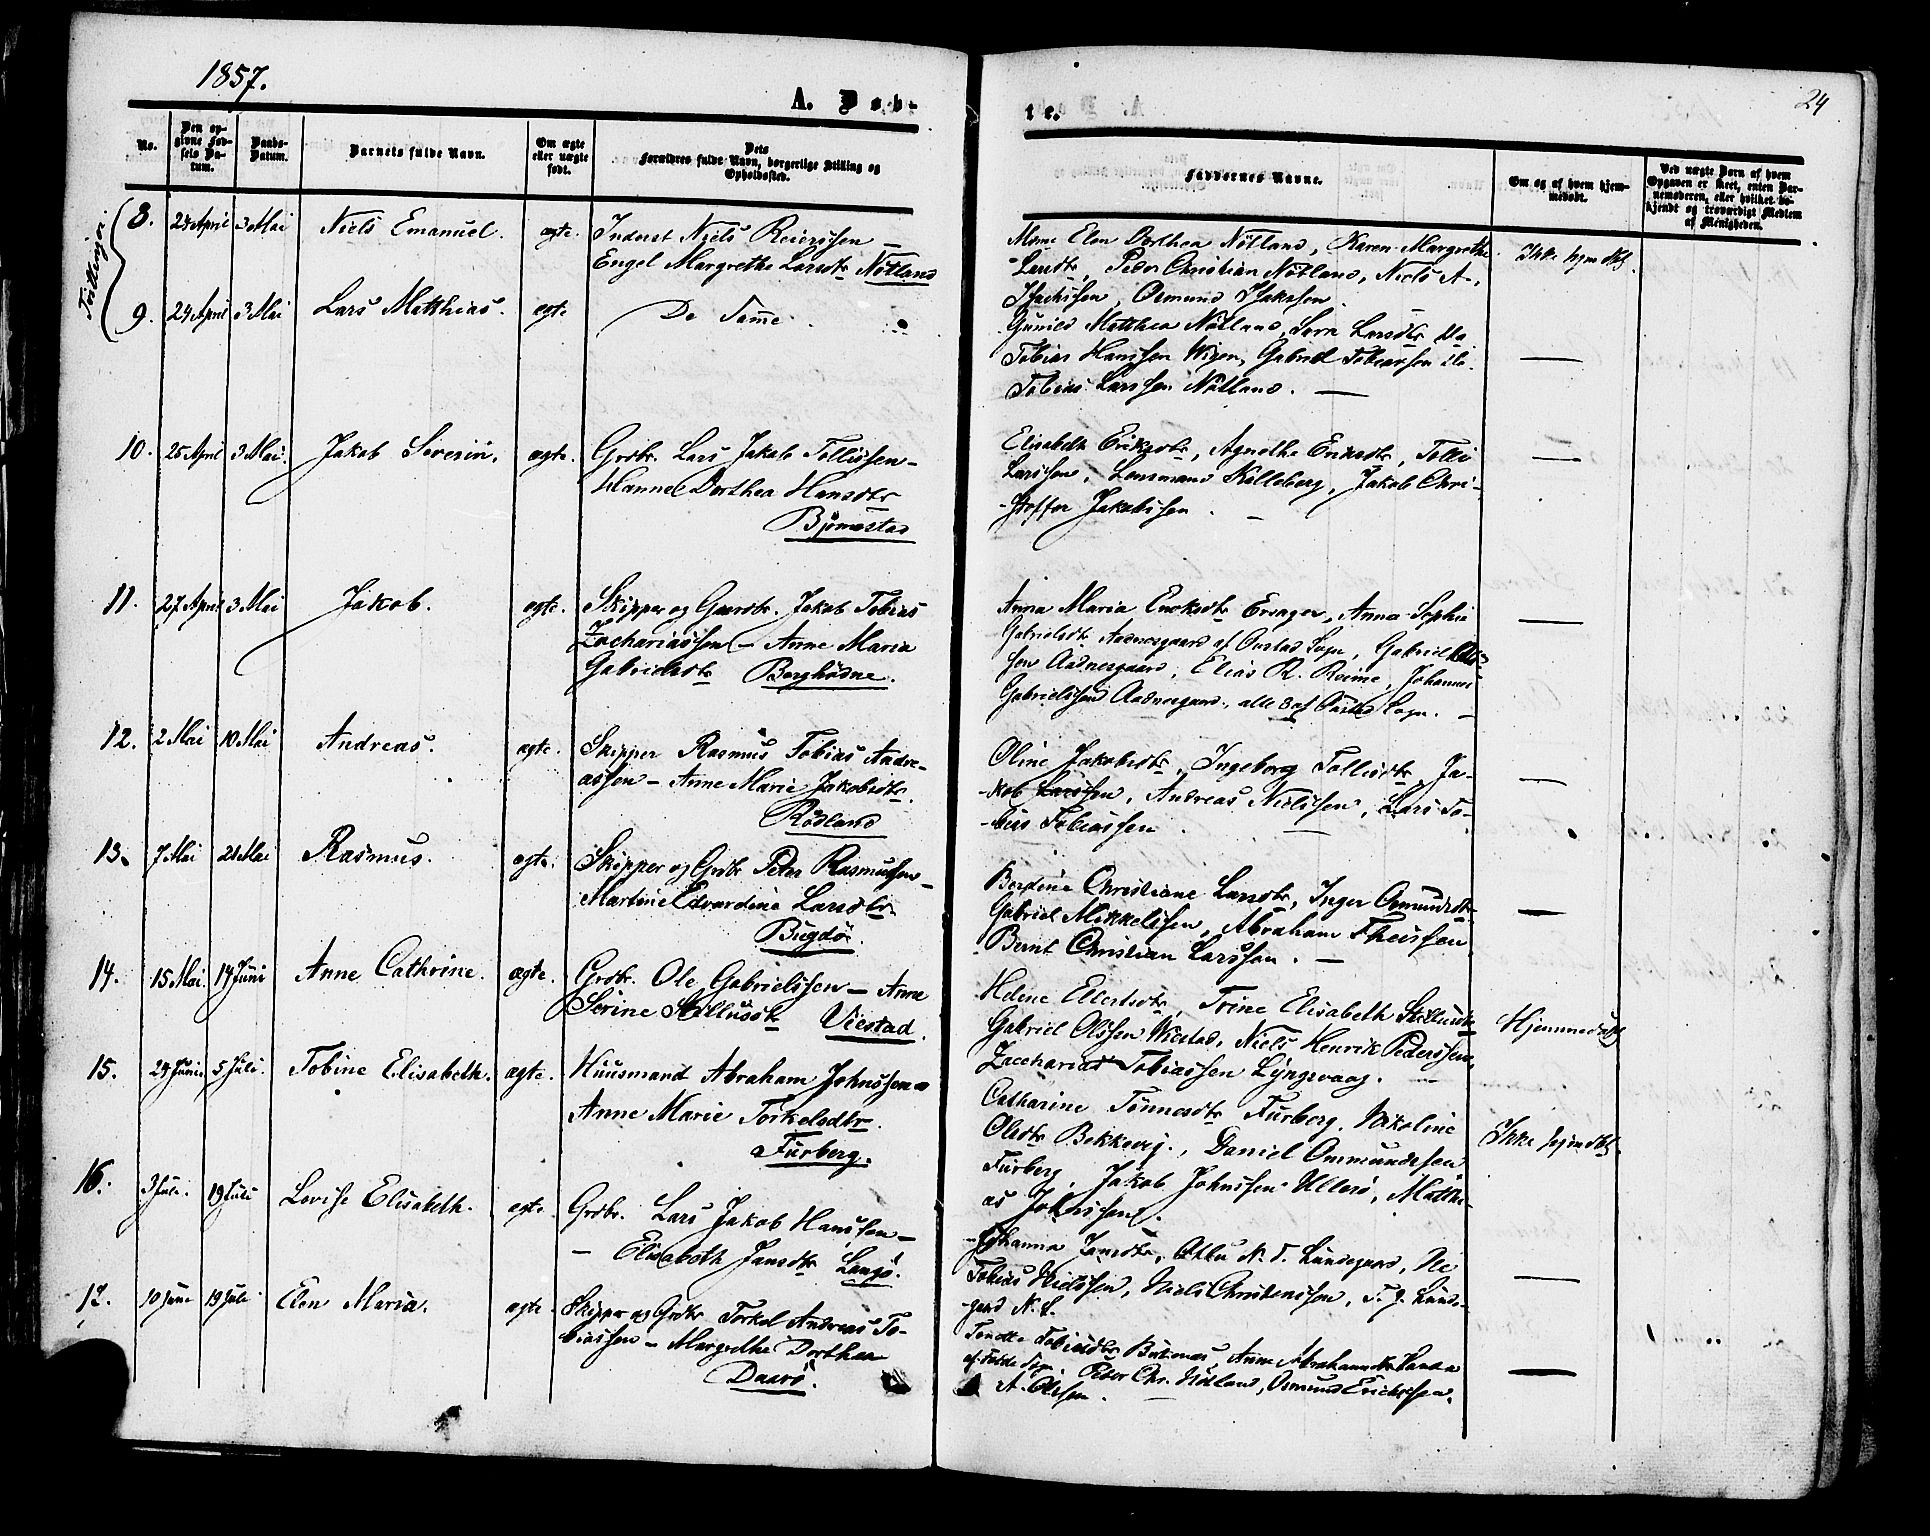 1857.
A. Døb-
te.
24
No.
Den op-
givne Fød-
sels Da-
tum.
Daabs-
Datum.
Barnets fulde Navn.
Om ægte
eller uægte
født.
Dets
Forældres fulde Navn, borgerlige Stilling og
Opholdssted.
Faddernes Navne.
Om og af hvem hjem-
medøbt.
Ved uægte Børn af hvem
Opgaven er skeet, enten Bar-
nemoderen, eller hvilket be-
kjendt og troværdigt Medlem
af Menigheden.
Tvillinger
8. 24 April 3 Mai Niels Emanuel. ægte. Inderst Niels Reierssen —
Engel Margrethe Larsdtr Nötland
Mome Elen Dorthea Nötland, Karen Margrethe
Larsdtr, Peder Christian Nötland, Niels A.
Osmund
Ikke hjmdbt.
9. 24 April 3 Mai Lars Matthias. ægte. De Samme.
Gunild Matthea Nötland, Sara Larsdtr
Tobias Hanssen Wigen, Gabriel Tobiassen
Tobias Larssen Nötland. —
—
10. 25 April 3 Mai. Jakob Severin. ægte. Grdbr. Lars Jakob Tollissen —
Hanne Dorthea Hansdtr
Bjørnestad
Elisabeth Eriksdtr, Agnethe Eriksdtr, Tolli
Larssen, Lensmand Kolleberg, Jakob Chri-
-stoffer Jakobssen. —
—
11. 27 April 3 Mai Jakob. ægte. Skipper og Gaardbr. Jakob Tobias
Zachariassen — Anne Maria
Gabrielsdtr Borghödne.
Anna Maria Eriksdtr Ersager, Anna Sophie
Gabrielsdtr Aadnesgaard af Sogn, Gabriel
sen Aadnesgaard, Elias R. Reime, Johannes
Gabrielssen Aadnesgaard, alle 3 af Sogn. —
—
12. 2 Mai 10 Mai Andreas. ægte. Skipper Rasmus Tobias Andre-
assen — Anne Marie Jakobsdtr.
Rödland
Oline Jakobsdtr, Ingeborg Tollisdtr, Ja-
-kob Larssen, Andreas Nielssen, Lars To-
-bias Tobiassen.
—
13. 7 Mai 21 Mai Rasmus. ægte. Skipper og Grdbr Peter Rasmussen —
Martine Edvardine Larsdtr.
Bugdö.
Berdine Christiane Larsdtr, Inger Osmundsdtr
Gabriel Mikkelssen, Abraham Theissen,
Bernt Christian Larssen. —
—
14. 15 Mai 14 Juni Anne Cathrine. ægte. Grdbr. Ole Gabrielssen — Anne
Serine Viestad.
Helene Ellertsdtr, Trine Elisabeth
Gabriel Olssen Wiestad, Niels Henrik Pederssen,
Zacharias Tobiassen Lyngsvaag. —
Hjemmedøbt
15. 24 Juni 5 Juli. Tobine Elisabeth. ægte. Huusmand Abraham Johnssen —
Anne Marie Torkelsdtr.
Furberg.
Catharine Tönnesdtr Furberg, Nikoline
Olsdtr Bekkevig, Daniel Ommundssen
Furberg, Jakob Johnssen Ullerö, Matthi-
as Johnssen.
Ikke hjmdbt.
16. 3 Juli. 19 Juli Lovise Elisabeth. ægte. Grdbr. Lars Jakob Hanssen —
— Elisabeth Jansdtr Langö.
Johanna Jansdtr, N. T. Lundegaard, Ole
Tobias Nielssen, Niels Christenssen, T. J. Lunde-
gaard N. L.
—
17. 10 Juni 19 Juli Elen Maria. ægte. Skipper og Grdbr Torkel Andreas To-
biassen — Margrethe Dorthea
Daarö.
Tobiasdtr, Anne Abrahamsdtr
Peter Chr. Nötland, Osmund Erichssen,
A. Olssen.
—